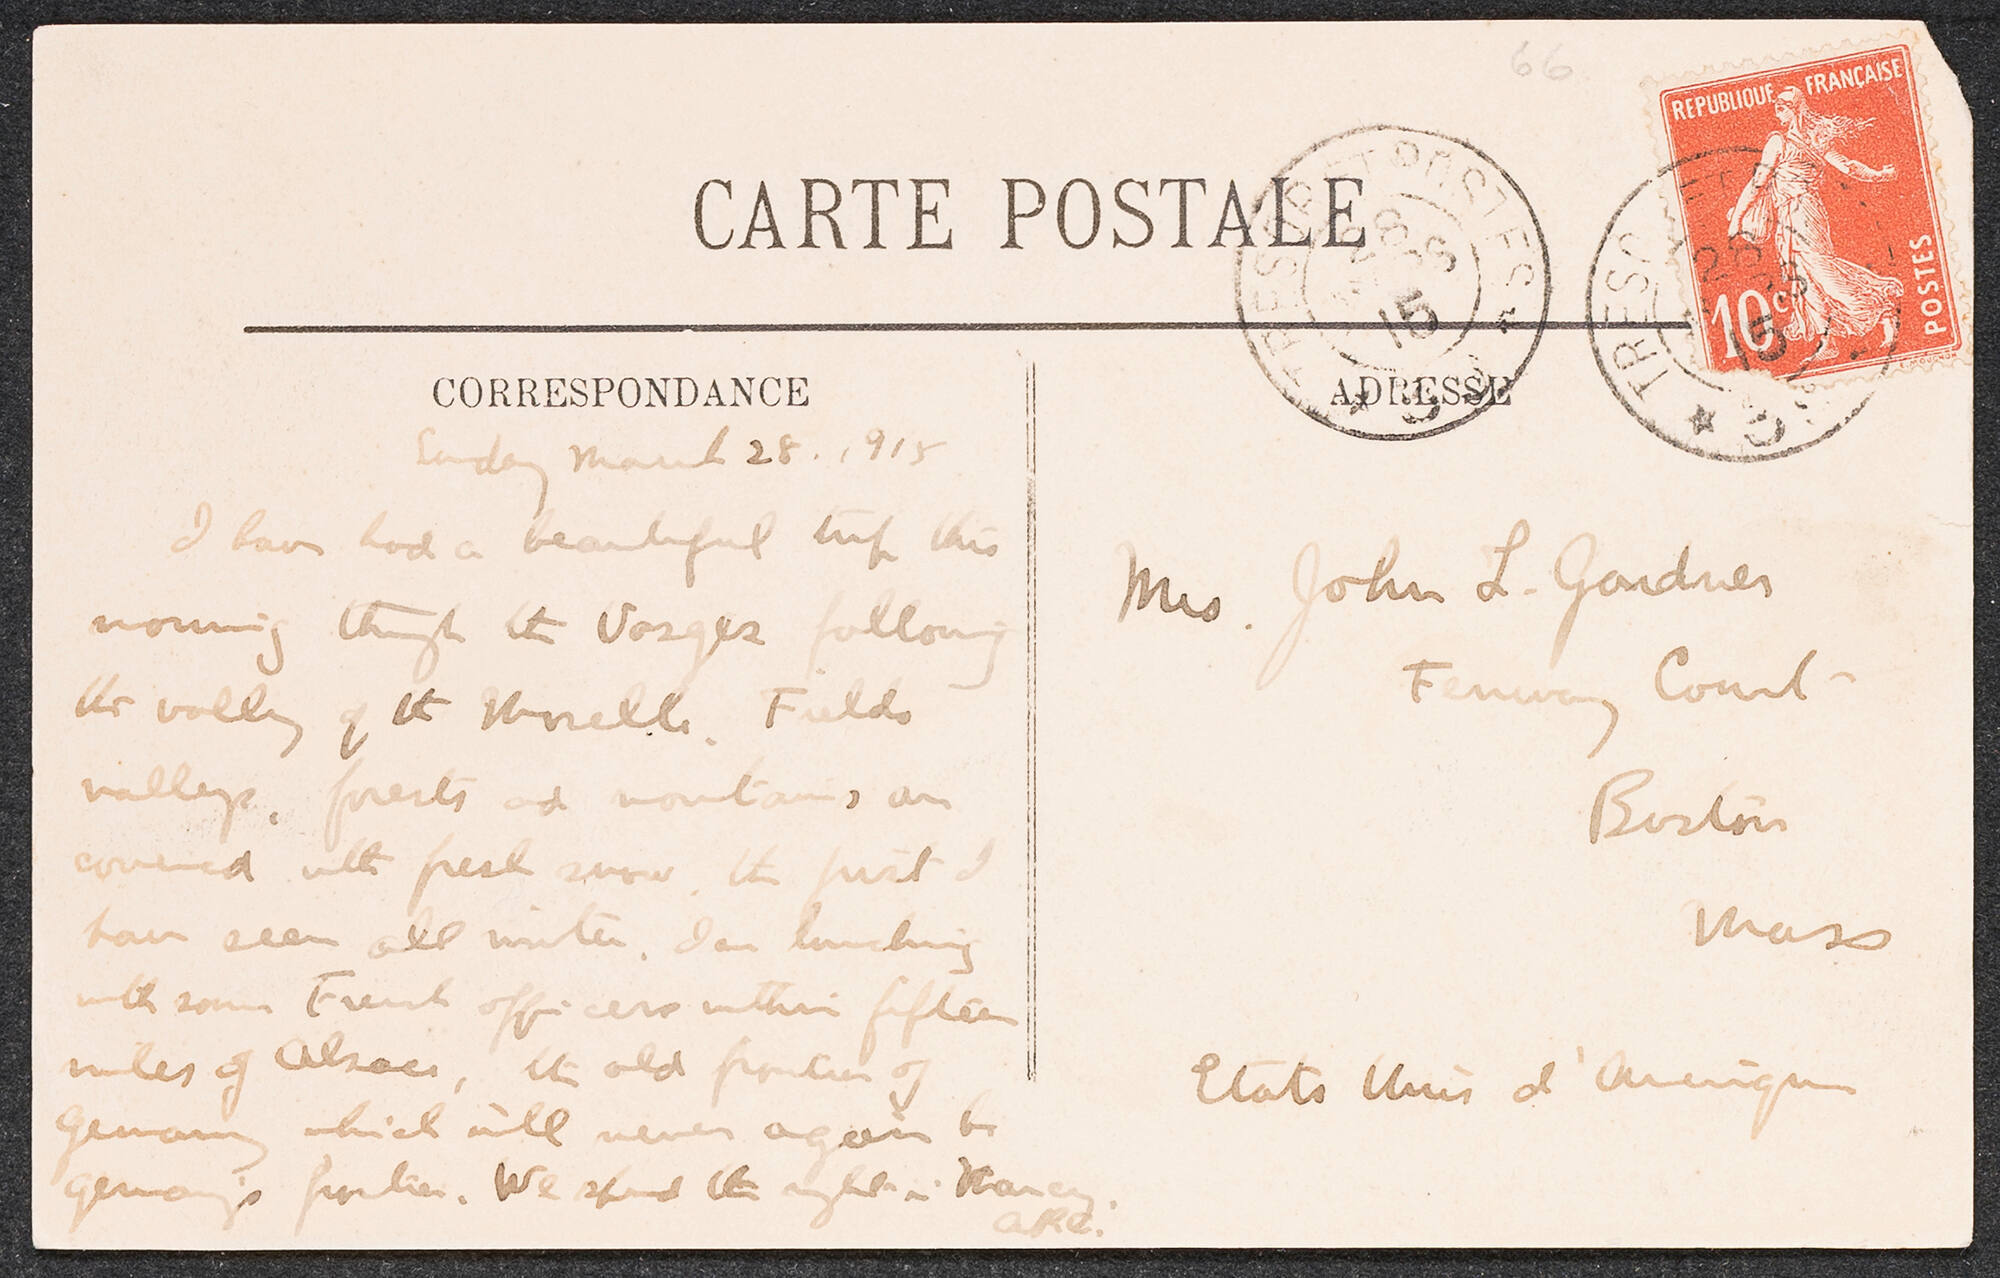 66
REPUBLIQUE FRANÇAISE
10c
POSTES
CARTE POSTALE
TRESOR ET POSTES
28
15
TRESOR ET
28
15
CORRESPONDANCE
ADRESSE
Sunday March 28. 1915
I have had a beautiful trip this
morning through the Vosges following
the valley of the Moselle. Fields
valleys, forests and mountains are
covered with fresh snow, the first I
have seen all winter. I am lunching
with some French officers within fifteen
miles of Alsace, the old frontier of
Germany which will never again be
Germany's frontier. We spend the night in Nancy.
Mrs. John L. Gardner
Fenway Court
Boston
Mass
Etats Unis d'Amerique